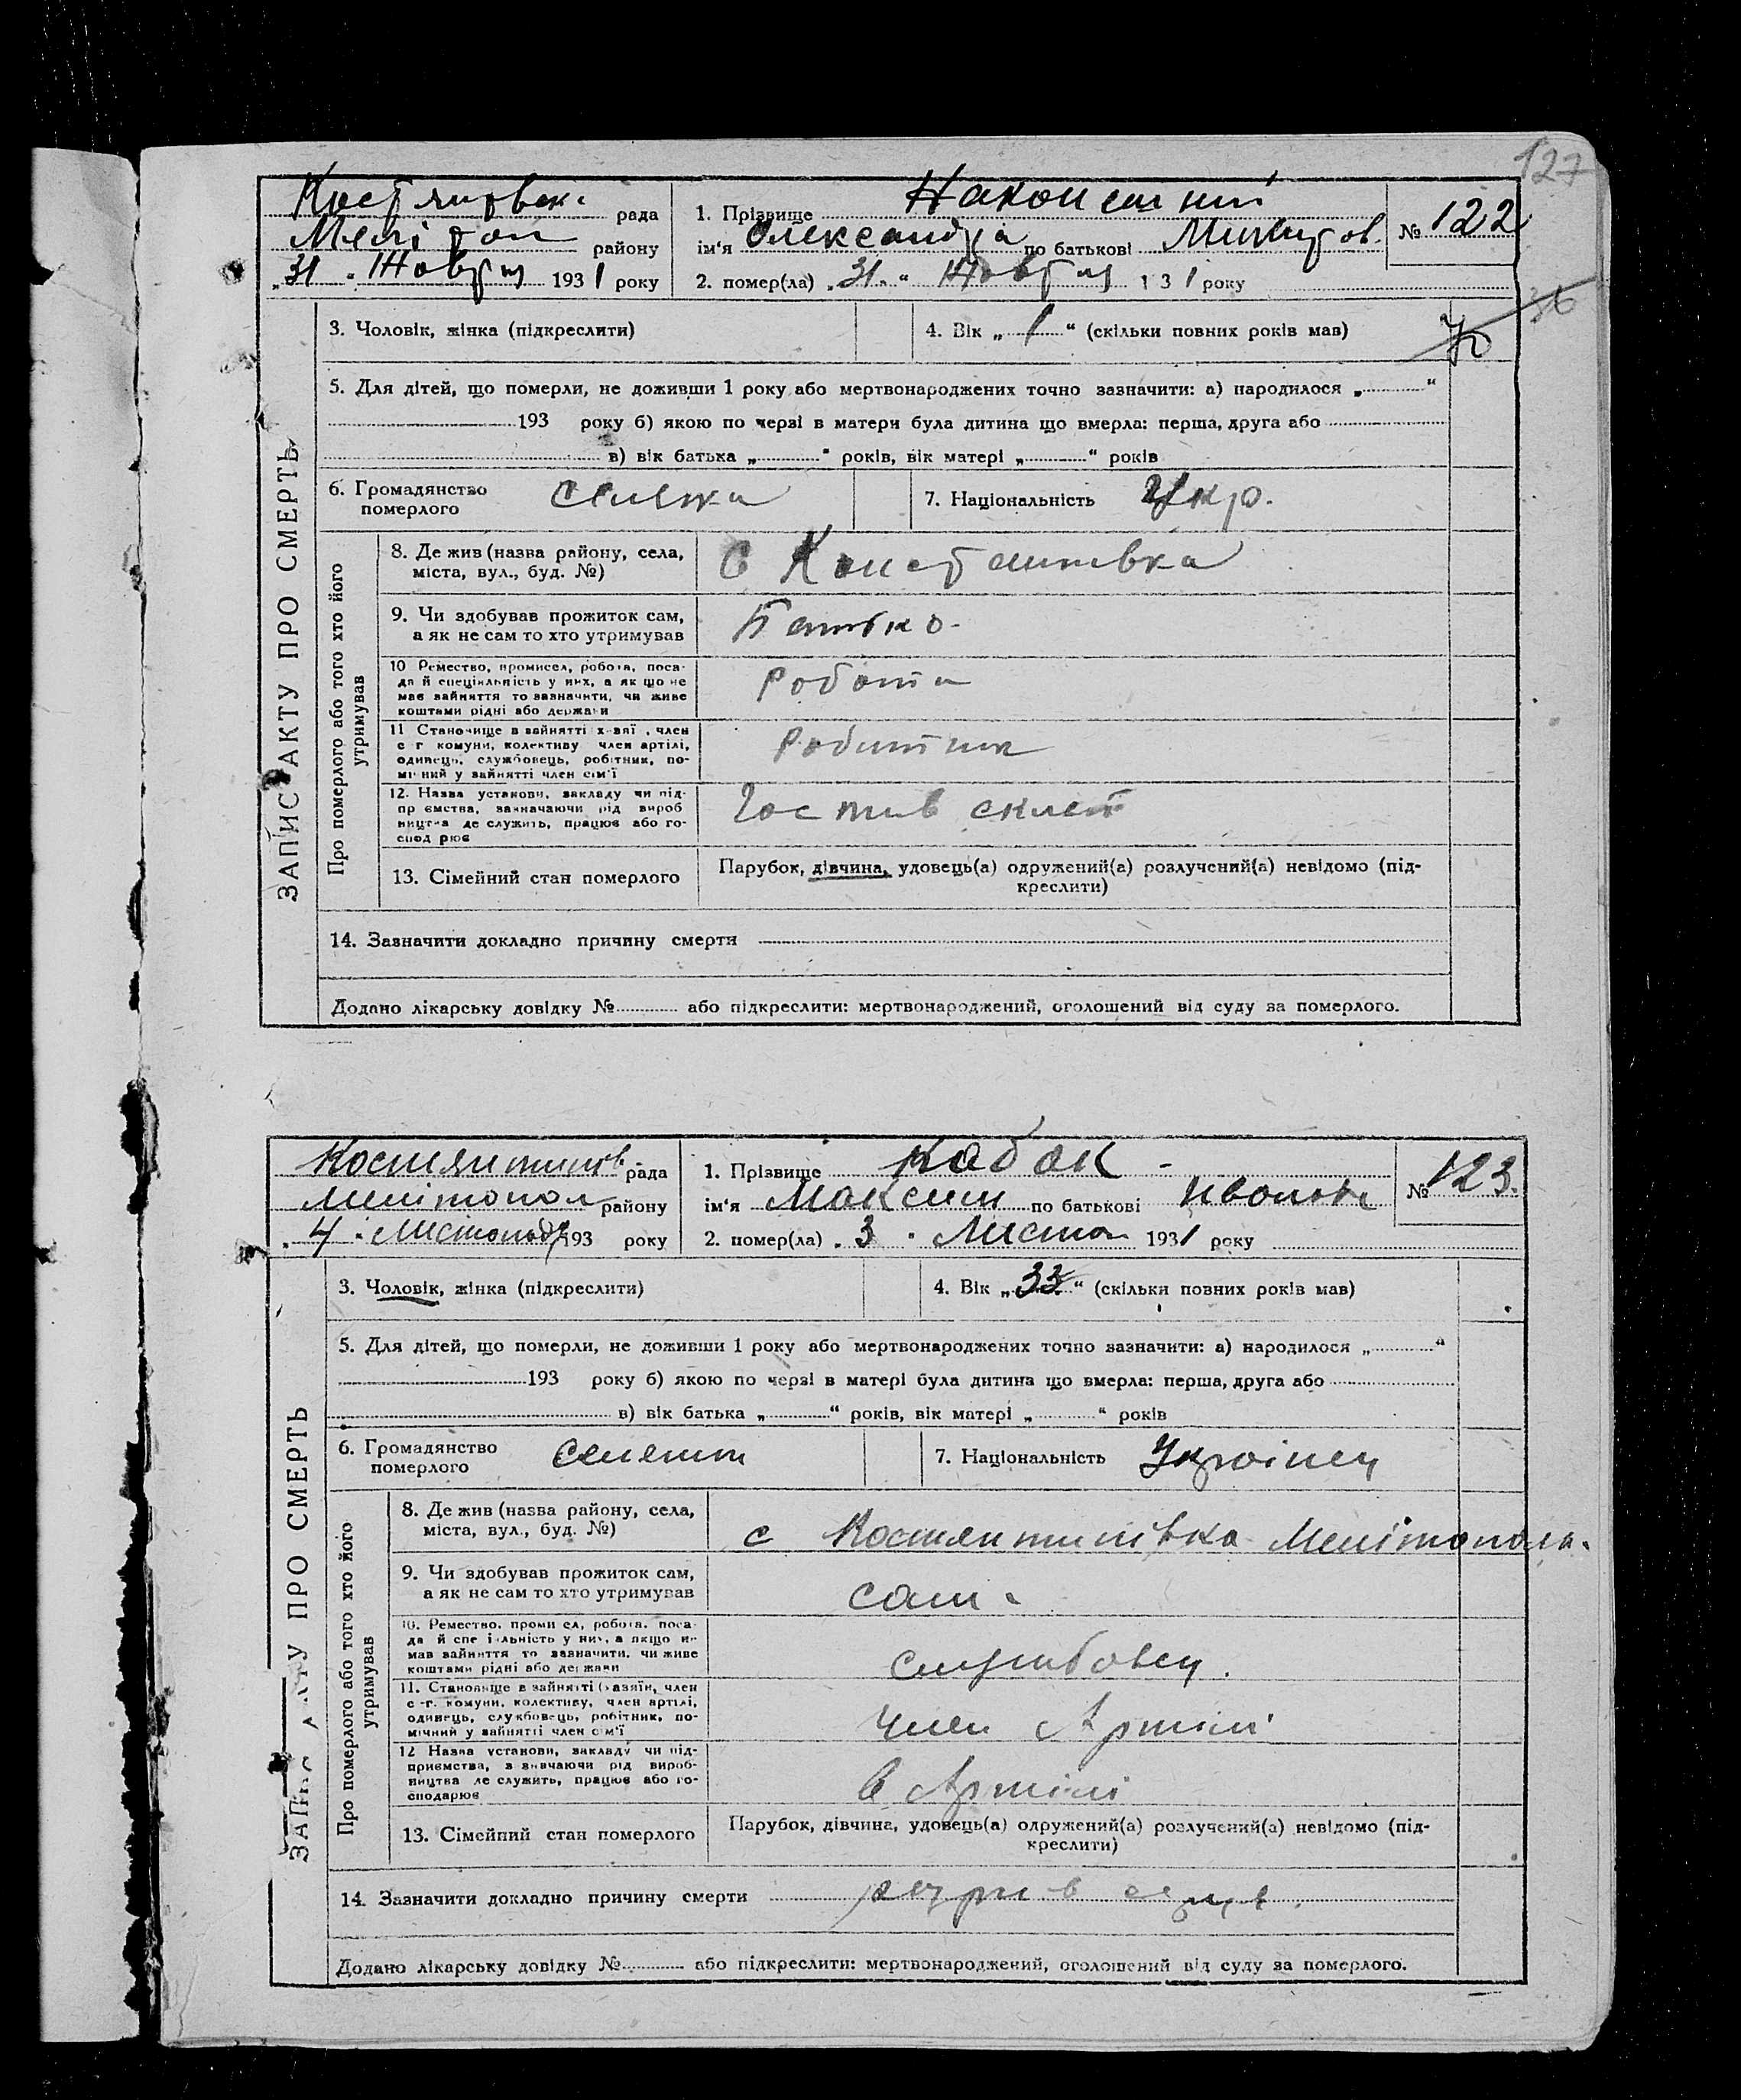 127
ЗАПИС АКТУ ПРО СМЕРТЬ
рада
Меліtоп району
„31“ Жовтня 1931 року
1. Прізвище
ім'я Олександра по батькові
№ 122
2. помер(ла) „31“ Жовтня 131 року
36
3. Чоловік, жінка (підкреслити)
4. Вік „1“ (скільки повних років мав)
5. Для дітей, що померли, не доживши 1 року або мертвонароджених точно зазначити: а) народилося „ “
193 року б) якою по черзі в матери була дитина що вмерла: перша, друга або
в) вік батька „ “ років, вік матері „ “ років
6. Громадянство померлого селянка
7. Національність Укр.
Про померлого або того хто його утримував
8. Де жив (назва району, села,
міста, вул., буд. №)
С Константивка
9. Чи здобував прожиток сам,
а як не сам то хто утримував
Батько
10 Ремество, промисел, робота, поса-
да й спеціяльність у них, а як що не
мав зайняття то зазначити, чи живе
коштами рідні або держави
Робота
11 Становище в зайнятті х зяї , член
с г комуни, колективу член артілі,
одинець, службовець, робітник, по-
мі ний у зайнятті член сім'ї
Робітник
12. Назва установи, закладу чи під-
пр ємства, зазначаючи рід вироб
ництва де служить, працює або го-
спод рює
13. Сімейний стан померлого
Парубок, дівчина, удовець(а) одружений(а) розлучений(а) невідомо (під-
креслити)
14. Зазначити докладно причину смерти
Додано лікарську довідку № або підкреслити: мертвонароджений, оголошений від суду за померлого.
ЗАПИС АКТУ ПРО СМЕРТЬ
Костянтинів рада
Мелітопол району
„4“ Листопада 193 року
1. Прізвище Кабак
ім'я Максим по батькові Иванов
№ 123.
2. помер(ла) „3“ Листоп 1931 року
3. Чоловік, жінка (підкреслити)
4. Вік „33“ (скільки повних років мав)
5. Для дітей, що померли, не доживши 1 року або мертвонароджених точно зазначити: а) народилося „ “
193 року б) якою по черзі в матері була дитина що вмерла: перша, друга або
в) вік батька „ “ років, вік матері „ “ років
6. Громадянство померлого селянин
7. Національність Українец
Про померлого або того хто його утримував
8. Де жив (назва району, села,
міста, вул., буд. №)
с Костянтинівка Мелітопол.
9. Чи здобував прожиток сам,
а як не сам то хто утримував
сам
10. Ремество, проми ел, робота, поса-
да й спе і льність у них, а якщо н
мав зайняття то зазначити, чи живе
коштами рідні або держави
службовец.
11. Становище в зайнятті (хазяїн, член
с-г. комуни, колективу, член артілі,
одинець, службовець, робітник, по-
мічний у зайнятті член сім'ї
член Артілі
12 Назва установи, закладу чи під-
приємства, зазначаючи рід вироб-
ництва де служить, працює або го-
сподарює
в Артілі
13. Сімейний стан померлого
Парубок, дівчина, удовець(а) одружений(а) розлучений(а) невідомо (під-
креслити)
14. Зазначити докладно причину смерти
Додано лікарську довідку № або підкреслити: мертвонароджений, оголошений від суду за померлого.